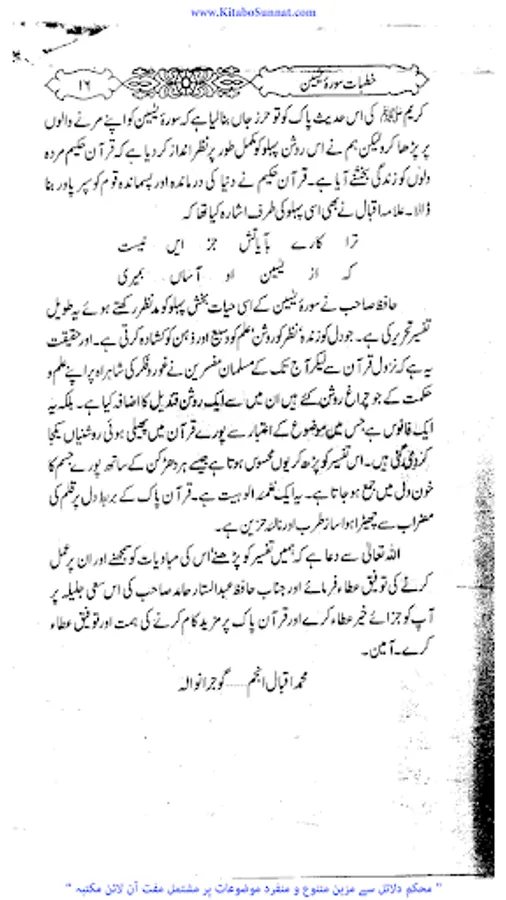 www.KitaboSunnat.com
خطبات سورۂ یٰسین
۱۶
کریم ﷺ کی اس حدیث پاک کو تو حرز جاں بنا لیا ہے کہ سورۂ یٰسین کو اپنے مرنے والوں
پر پڑھا کرو لیکن ہم نے اس روشن پہلو کو مکمل طور پر نظر انداز کر دیا ہے کہ قرآن حکیم مردہ
دلوں کو زندگی بخشنے آیا ہے۔ قرآن حکیم نے دنیا کی درماندہ اور پسماندہ قوم کو سپر پاور بنا
ڈالا۔ علامہ اقبال نے بھی اسی پہلو کی طرف اشارہ کیا تھا کہ
ترا کارے بآیاتش جز ایں نیست
کہ از یٰسین او آساں بمیری
حافظ صاحب نے سورۂ یٰسین کے اسی حیات بخش پہلو کو مدنظر رکھتے ہوئے یہ طویل
تفسیر تحریر کی ہے۔ جو دل کو زندہ' نظر کو روشن' علم کو وسیع اور ذہن کو کشادہ کرتی ہے۔ اور حقیقت
یہ ہے کہ نزول قرآن سے لیکر آج تک کے مسلمان مفسرین نے غور و فکر کی شاہراہ پر اپنے علم و
حکمت کے جو چراغ روشن کئے ہیں ان میں سے ایک روشن قندیل کا اضافہ کیا ہے۔ بلکہ یہ
ایک فانوس ہے جس میں موضوع کے اعتبار سے پورے قرآن میں پھیلی ہوئی روشنیاں یکجا
کر دی گئی ہیں۔ اس تفسیر کو پڑھ کر یوں محسوس ہوتا ہے جیسے ہر دھڑکن کے ساتھ پورے جسم کا
خون دل میں جمع ہو جاتا ہے۔ یہ ایک نغمۂ الوہیت ہے۔ قرآن پاک کے بربط دل پر قلم کی
مضراب سے چھیڑا ہوا ساز طرب اور نالۂ حزین ہے۔
اللہ تعالیٰ سے دعا ہے کہ ہمیں تفسیر کو پڑھنے' اس کی مبادیات کو سمجھنے اور ان پر عمل
کرنے کی توفیق عطاء فرمائے اور جناب حافظ عبدالستار حامد صاحب کی اس سعی جلیلہ پر
آپ کو جزائے خیر عطاء کرے اور قرآن پاک پر مزید کام کرنے کی ہمت اور توفیق عطاء
کرے۔ آمین۔
محمد اقبال انجم ...... گوجرانوالہ
" محکم دلائل سے مزین متنوع و منفرد موضوعات پر مشتمل مفت آن لائن مکتبہ "